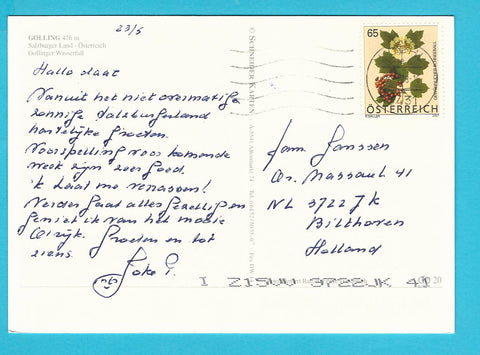 23/5
GOLLING 476 m
Salzburger Land - Österreich
Gollinger Wasserfall
Hallo daar
Vanuit het niet overmatige
zonnige Salzburgerland
hartelijke groeten.
Voorspelling voor komende
week zijn zeer goed.
'k laat me verrassen!
Verder gaat alles gezellig en
geniet ik van het mooie
O'rijk. Groeten en tot
ziens.
Joke G.
© SCHNEIDER KARTEN
65
ÖSTERREICH
Fam. Janssen
Or. Nassaul 41
NL 3722 JK
Bilthoven
Holland
3722JK 41
20